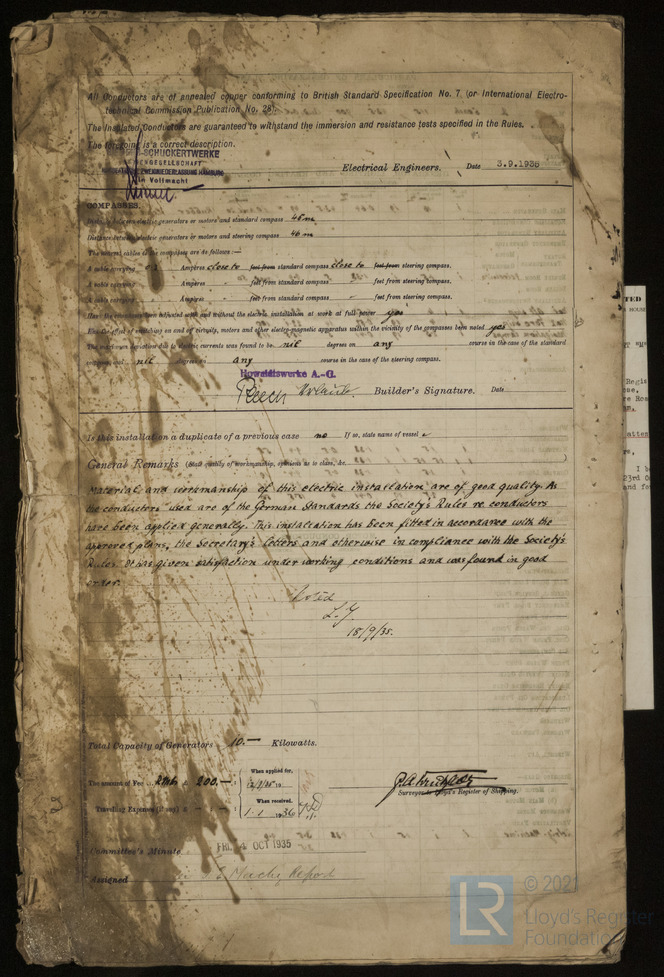 All Conductors are of annealed copper conforming to British Standard Specification No. 7. (or International Electro-
technical Commission Publication No. 28).
The Insulated Conductors are guaranteed to withstand the immersion and resistance tests specified in the Rules.
The foregoing is a correct description.
SCHUCKERTWERKE
ZWEIGNIEDERLASSUNG HAMBURG
In Vollmacht
Electrical Engineers. Date 3.9.1935
COMPASSES.
Distance between electric generators or motors and standard compass 46 m
Distance between electric generators or motors and steering compass 46 m
The nearest cables to the compasses are as follows:—
A cable carrying Ampères close to feet from standard compass close to feet from steering compass.
A cable carrying Ampères feet from standard compass feet from steering compass.
A cable carrying Ampères feet from standard compass feet from steering compass.
Have the compasses been adjusted with and without the electric installation at work at full power yes
Has the effect of switching on and off circuits, motors and other electro-magnetic apparatus within the vicinity of the compasses been noted yes
The maximum deviation due to electric currents was found to be nil degrees on any course in the case of the standard
compass and nil degrees on any course in the case of the steering compass.
Howaldtswerke A.-G.
Builder's Signature. Date
Is this installation a duplicate of a previous case no If so, state name of vessel
General Remarks (State quality of workmanship, opinions as to class, &c.
Material and workmanship of this electric installation are of good quality. As
the conductors used are of the German Standards the Society's Rules re conductors
have been applied generally. This installation has been fitted in accordance with the
approved plans, the Secretary's letters and otherwise in compliance with the Society's
Rules. It has given satisfaction under working conditions and was found in good
order.
Noted
18/9/35.
Total Capacity of Generators 10.— Kilowatts.
The amount of Fee 200.—
When applied for,
Travelling Expenses (if any)
When received,
1.1 1936
Surveyor to Lloyd's Register of Shipping.
Committee's Minute FRI. 4 OCT 1935
Assigned
LR
© 2021
Lloyd's Register
Foundation